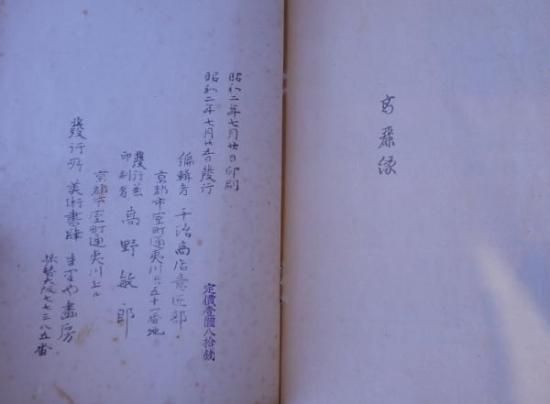 昭和二年七月廿日印刷
昭和二年七月廿五日發行
定價壹圓八拾錢
編輯者 千治商店意匠部
京都市室町通夷川 五十一番地
發行兼
印刷者 高野敏郎
京都市室町通夷川上ル
發行所 美術書肆 畫房
振替大阪七七三八五番